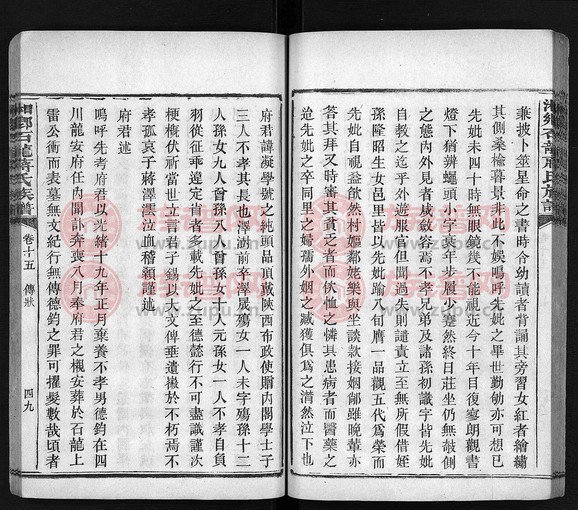 湘鄉石龍蔣氏族譜
兼披卜筮星命之書時令幼讀者背誦其旁習女紅者繪繡
其側桑榆暮景非此不娛嗚呼先妣之畢世勤劬亦可想已
先妣未四十時無眼鏡幾不能視近今十年目復寥朗觀書
燈下猶辨蠅頭小字衰年步履少蹇然終日莊坐仍無攲側
之態內外見者咸斂容焉不孝兄弟及諸孫初識字皆先妣
自教之迄乎外遊服官但聞過失則譴責立至無所假借姪
孫隆昭生女邑里皆以先妣踰八旬膺一品觀五代爲榮而
先妣自視益歉然村嫗鄰姥樂與坐談款接姻鄰雖晚輩亦
答其拜又時審其貧乏者而佽恤之憐其患病者而醫藥之
迨先妣之卒同里之婦孺外姻之臧獲俱爲之潸然泣下也
府君諱凝學號之純頭品頂戴陝西布政使贈內閣學士子
三人不孝其長也澤澍前卒澤殤女一人未字殤孫十二
人孫女九人曾孫八人曾孫女十人元孫女一人不孝自負
羽從征乖違定省者多載先妣之至德懿行不可盡識謹次
梗概伏祈當世立言君子錫以大文俾垂遺徽於不朽焉不
孝孤哀子蔣澤澐泣血稽顙謹述
府君述
嗚呼先考府君以光緒十九年正月棄養不孝男德鈞在四
川龍安府任內聞訃奔喪八月奉府君之櫬安葬於石龍上
雷公衝而表墓無文紀行無傳德鈞之罪可擢髮數哉頃者
湘鄉石龍蔣氏族譜
卷十五
傳狀
四九